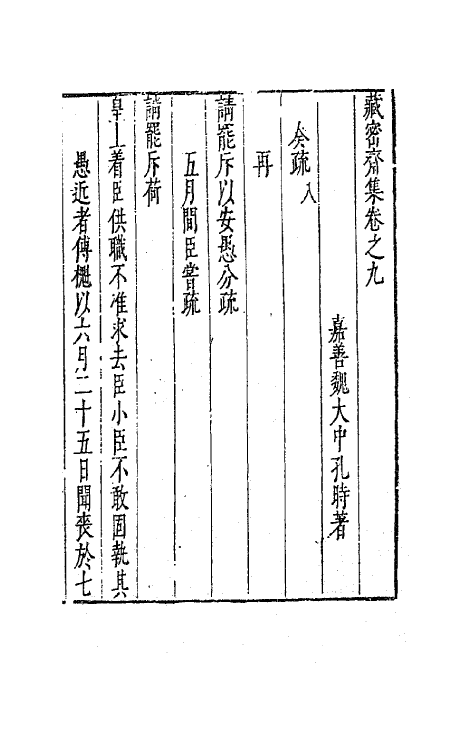 藏密齋集卷之九
嘉善魏大中孔時著
奏疏八
再
請罷斥以安愚分疏
五月間臣嘗疏
請罷斥荷
皇上着臣供職不准求去臣小臣不敢固執其
愚近者傅櫆以六月二十五日聞喪於七